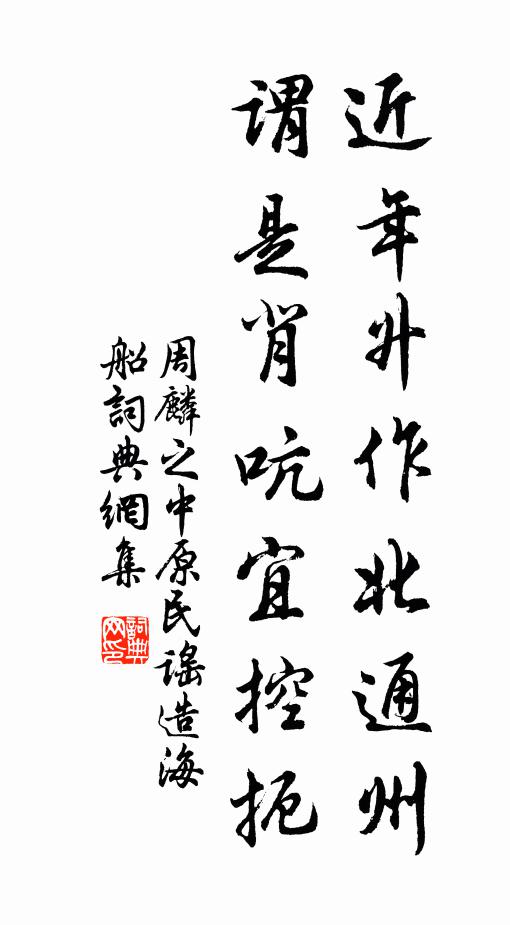 近年升作北通州
谓是背吭宜控扼
周麟之中原民谣造海
船詞典網集
詞典网印